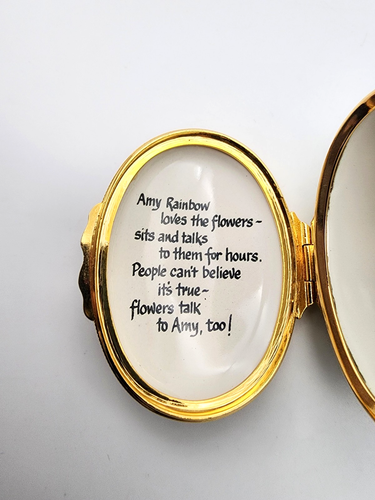 Amy Rainbow
loves the flowers~
sits and talks
to them for hours.
People can't believe
it's true~
flowers talk
to Amy, too!